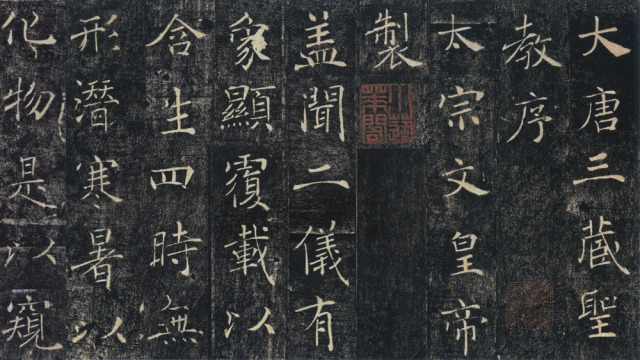 大唐三藏聖
教序
太宗文皇帝
製
盖聞二儀有
象顯覆載以
含生四時無
形潛寒暑以
化物是以窺